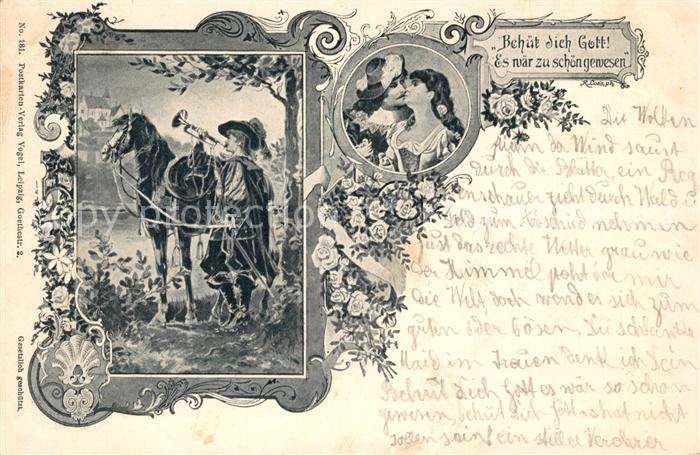 „Behüt dich Gott!
Es wär zu schön gewesen"
R. Loës ph.
Die Wolken
fliehn der Wind saust
durch die Blätter, ein Reg
enschauer zieht durch Wald u
Feld zum Abschied nehmen
just das rechte Wetter grau wie
der Himmel steht vor mir
die Welt, doch wend es sich zum
guten oder bösen, Du schlanke
Maid in Treuen denk ich Dein
Behüt dich Gott es wär so schön
gewesen, behüt dich Gott es hat nicht
sollen sein! ein stiller Verehrer
No. 181. Postkarten-Verlag Vogel, Leipzig, Goethestr. 2.
Gesetzlich geschützt.